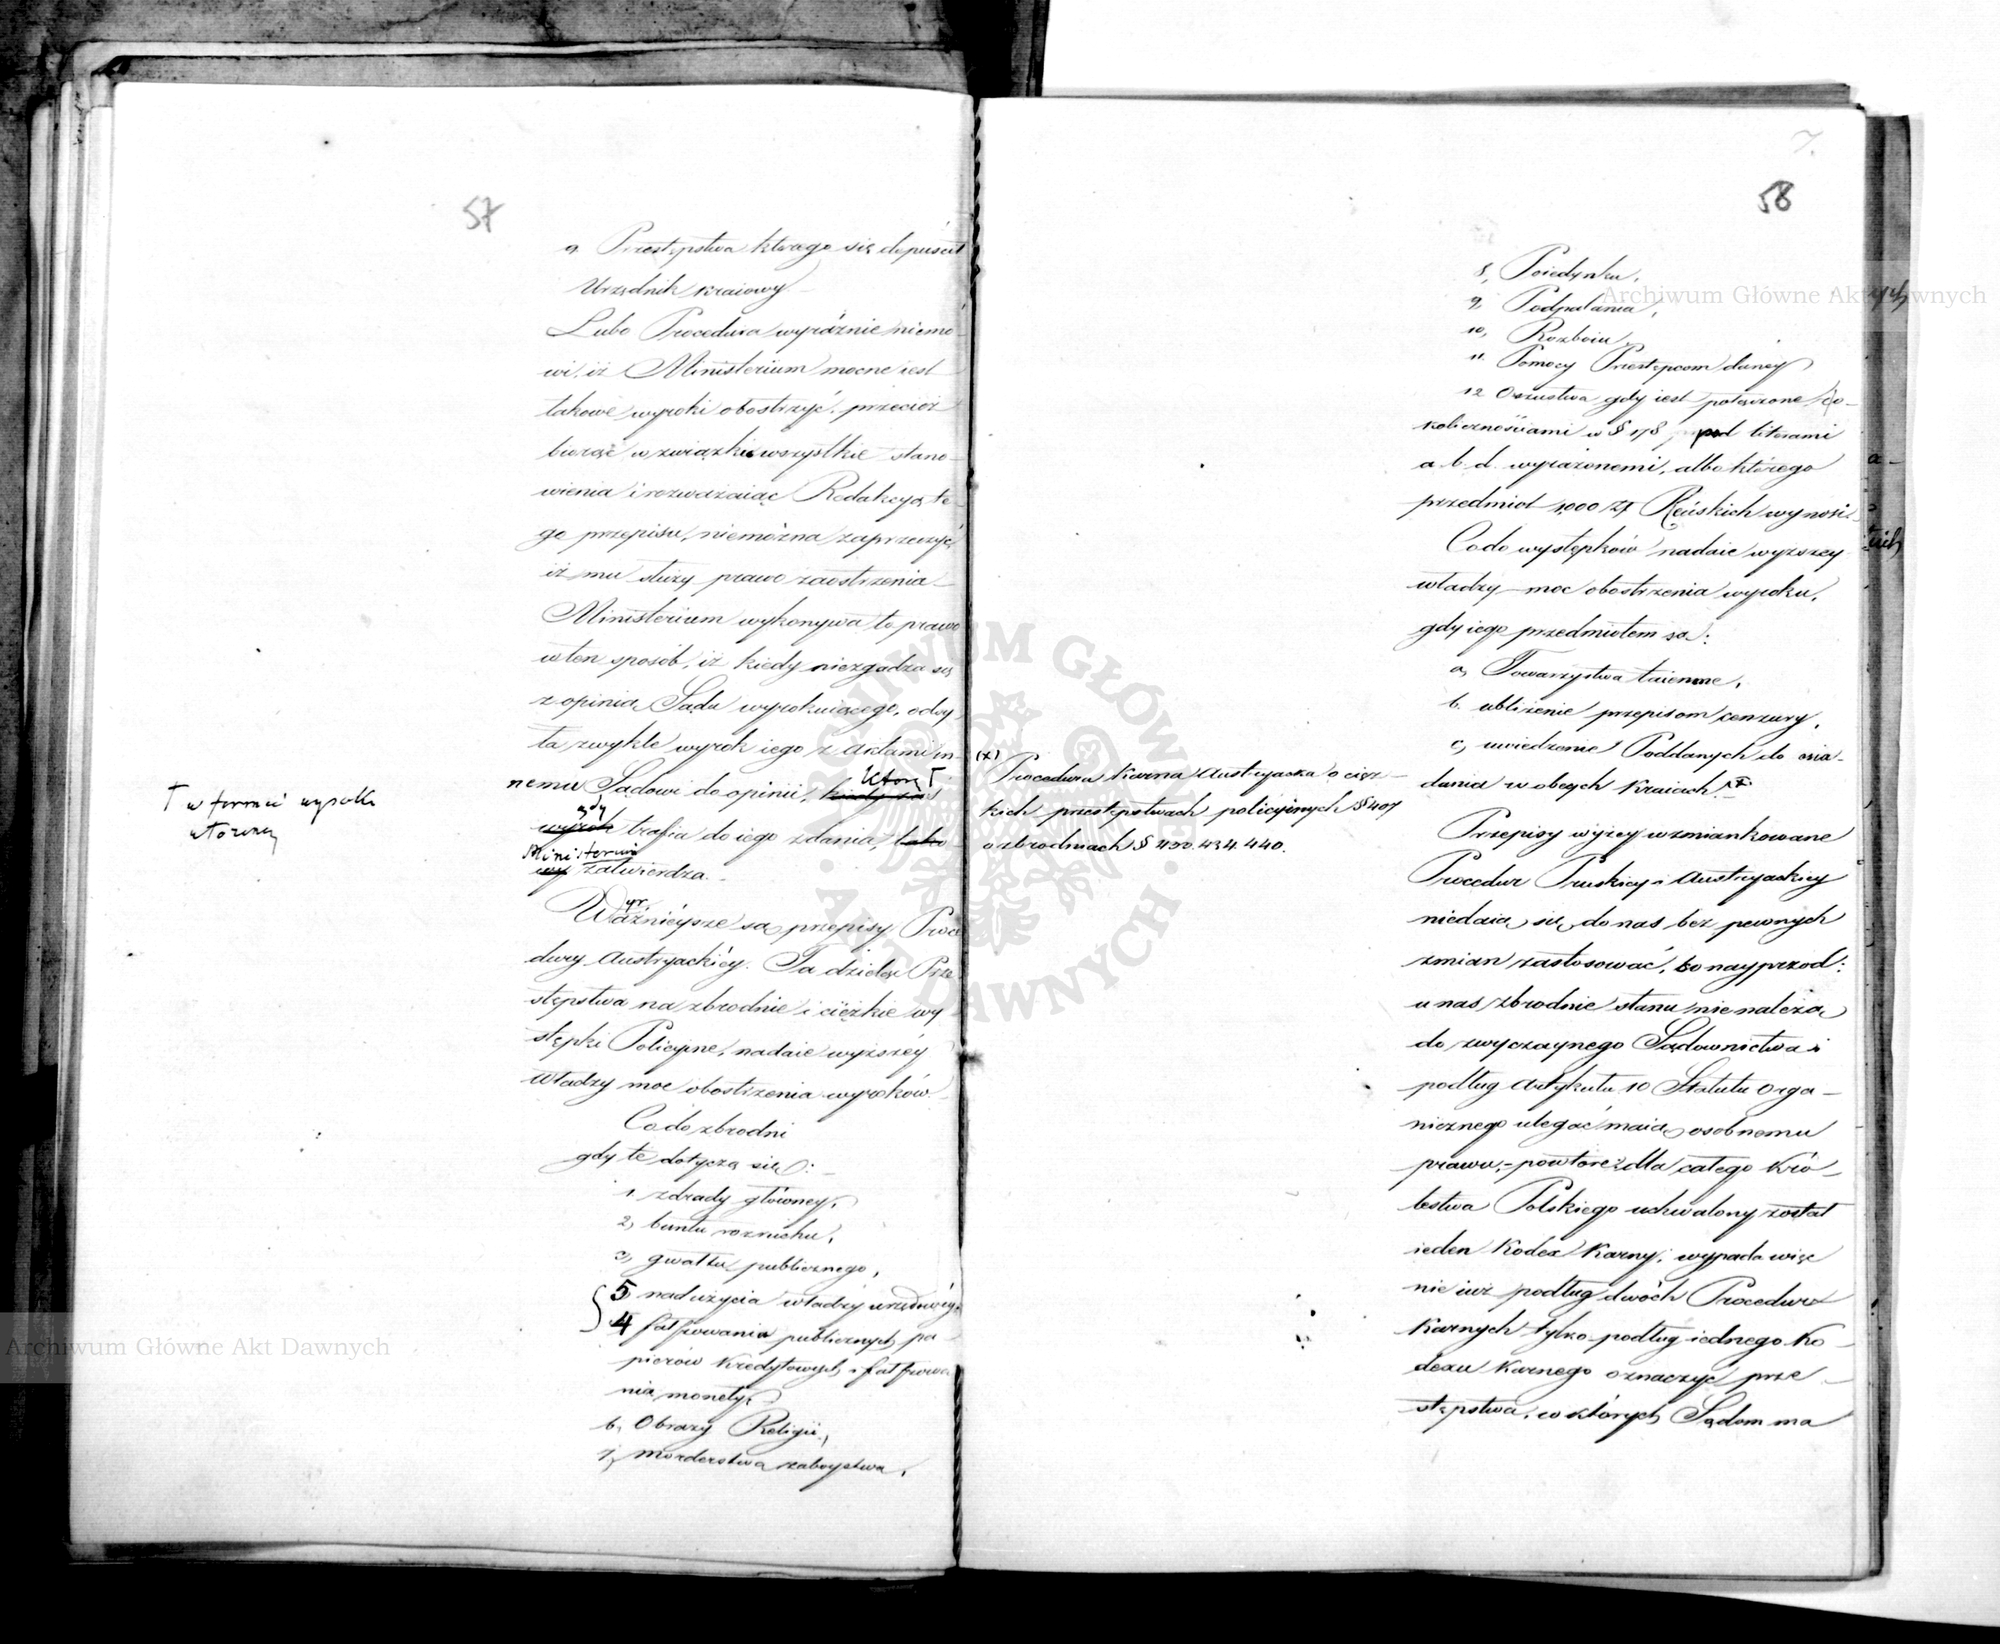 57
9. Przestępstwa którego się dopuścił
Urzędnik kraiowy.
Lubo Procedura wyraźnie niemó-
wi, iż Ministerium mocne iest
takowe wyroki obostrzyć, przecież
biorąc w związku wszystkie stano-
wienia i rozważaiąc Redakcyą te-
go przepisu, niemożna zaprzeczyć,
iż mu służy prawo zaostrzenia
Ministerium wykonywa to prawo
w ten sposób, iż kiedy niezgadza się
z opinią Sądu wyrokuiącego, odsy-
ła zwykle wyrok iego z aktami in-
nemu Sądowi do opinii, kiedy zaś która Γ
wyrok gdy trafia do iego zdania,
Ministerium zatwierdza.
Γ w formie wyroku
Ważnieysze są przepisy Proce-
dury Austryackiey. Ta dzieląc Prze-
stępstwa na zbrodnie i ciężkie wy-
stępki Policyine, nadaie wyższey
Władzy moc obostrzenia wyroków.
Co do zbrodni
gdy te dotyczą się:
1. zdrady główney,
2, buntu rozruchu,
3, gwałtu publicznego,
5 nadużycia władzy urzędowey,
4 fałszowania publicznych pa-
pierów kredytowych i fałszowa-
nia monety,
6, Obrazy Religii,
7, morderstwa zaboystwa,
7.
58
8, Poiedynku,
9, Podpalania,
10, Rozboiu,
11. Pomocy Przestępcom daney
12 Oszustwa gdy iest połączone z o-
kolicznościami w § 178 pod literami
a. b. d. wyrażonemi, albo którego
przedmiot 1,000 Zł Reńskich wynosi.
Co do występków nadaie wyższey
władzy moc obostrzenia wyroku,
gdy iego przedmiotem są:
a, Towarzystwa taiemne,
b. ubliżenie przepisom cenzury,
c, uwiedzenie Poddanych do osia-
dania w obcych kraiach. (x)
(x)
Procedura Karna Austryacka o cięż-
kich przestępstwach policyinych § 407
o zbrodniach § 430. 434. 440.
Przepisy wyżey wzmiankowane
Procedur Pruskiey i Austryackiey
niedaią się do nas bez pewnych
zmian zastosować, bo nayprzod:
u nas zbrodnie stanu nie należą
do zwyczaynego Sądownictwa i
podług Artykułu 10 Statutu Orga-
nicznego ulegać maią osobnemu
prawu,- powtóre: dla całego Kró-
lestwa Polskiego uchwalony został
ieden Kodex Karny, wypada więc
nie iuż podług dwóch Procedur
Karnych tylko podług iednego Ko-
dexu Karnego oznaczyć prze-
stępstwa, w których Sądom ma
Archiwum Główne Akt Dawnych
Archiwum Główne Akt Dawnych
ARCHIWUM GŁÓWNE AKT DAWNYCH